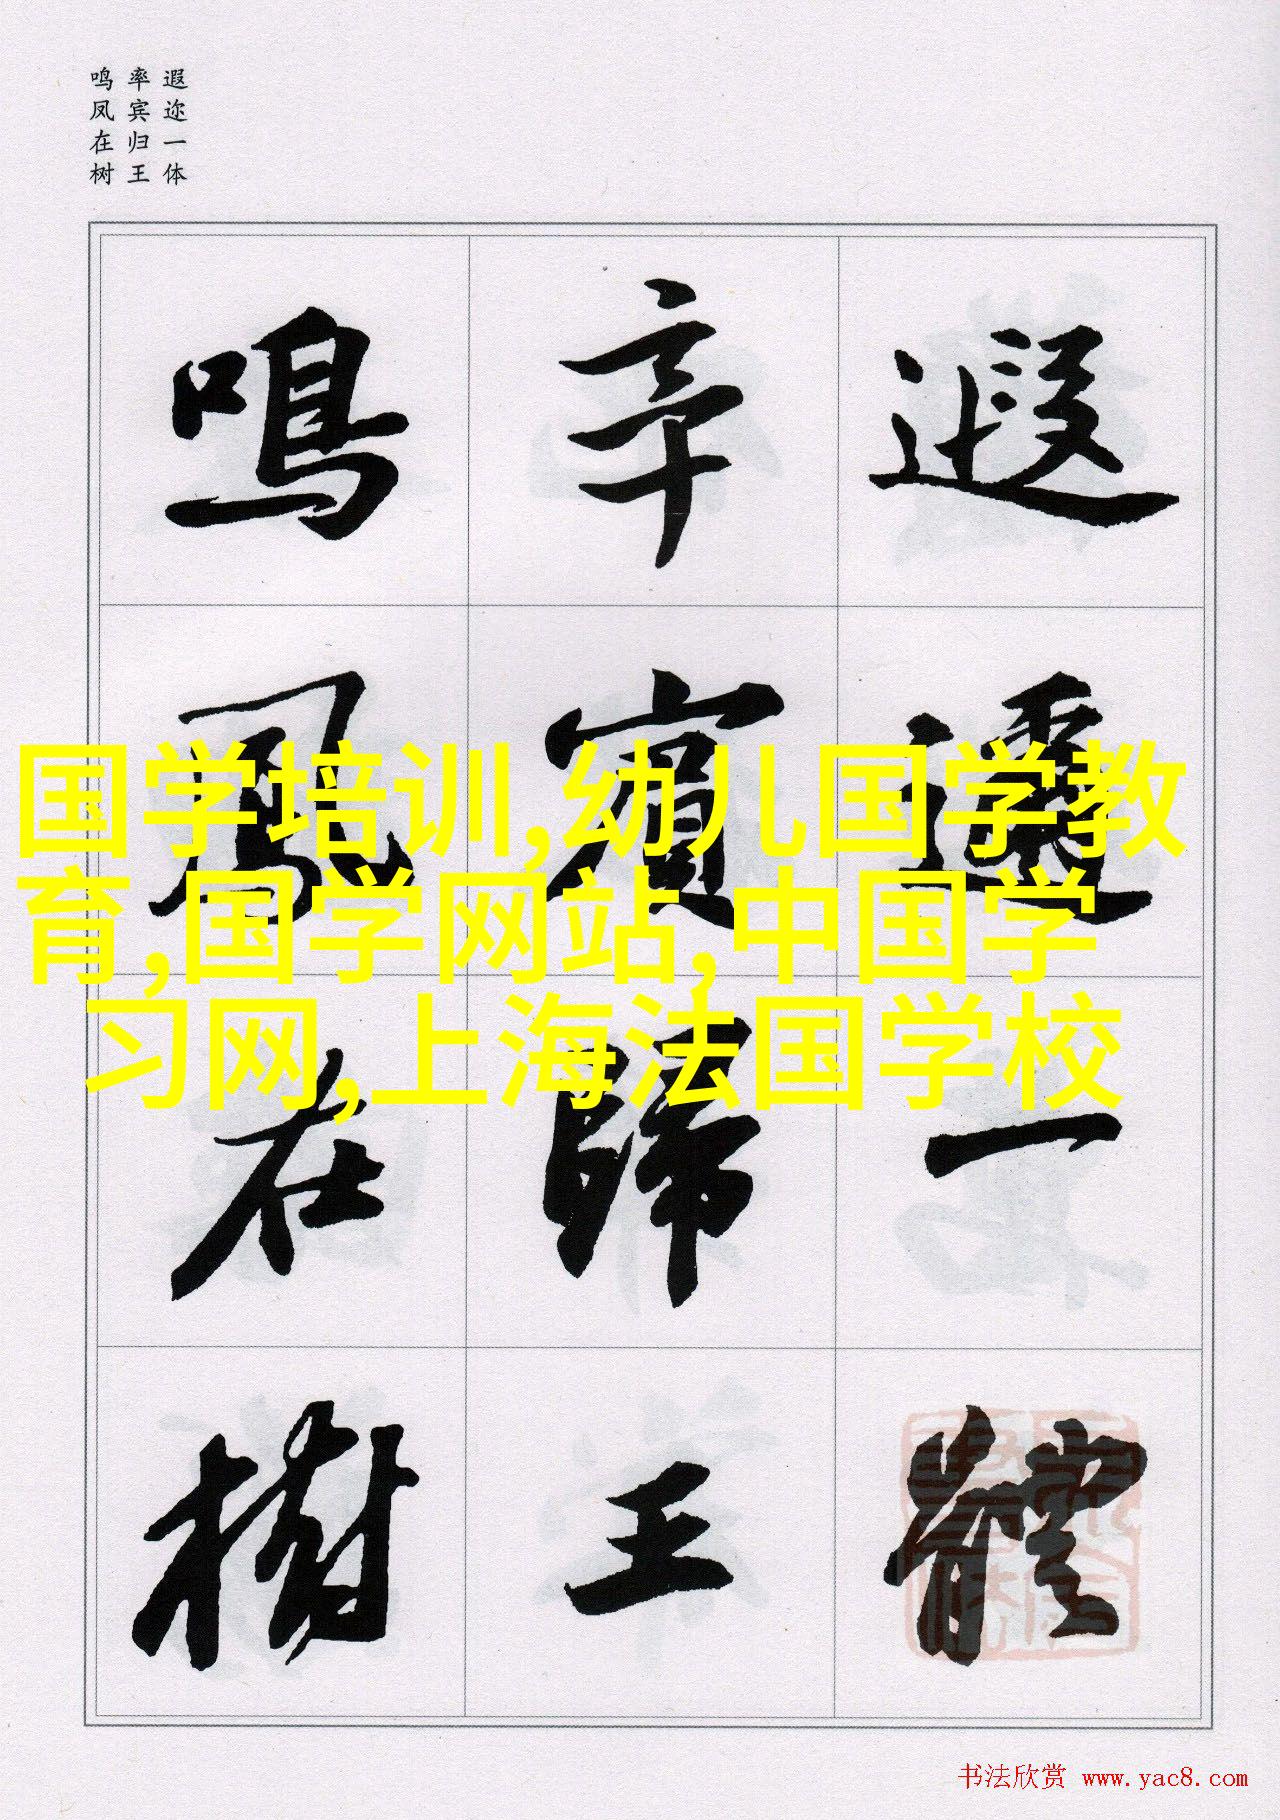 遐迩一体
率宾归王
鸣凤在树
遐邇一體
率賓歸王
鳴鳳在樹
国学培训,幼儿国学教
育,国学网站,中国学
习网,上海法国学校
书法欣赏 www.yac8.com